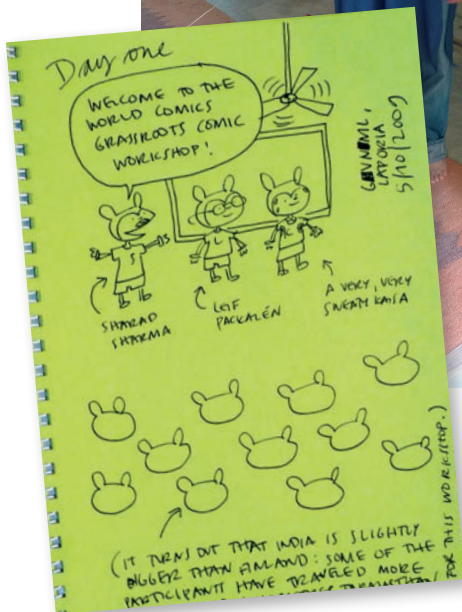 Day one
WELCOME TO THE
WORLD COMICS
GRASSROOTS COMIC
WORKSHOP!
LAPORIA
5/10/2009
S
L
SHARAD
SHARMA
LEIF
PACKALÉN
A VERY, VERY
SWEATY KAISA
(IT TURNS OUT THAT INDIA IS SLIGHTLY
BIGGER THAN FINLAND: SOME OF THE
PARTICIPANTS HAVE TRAVELED MORE
FOR THIS WORKSHOP.)